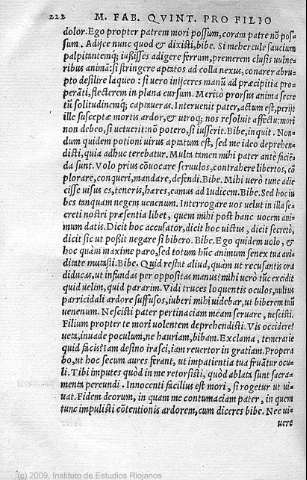 222 M. FAB. QVINT. PRO FILIO
dolor. Ego propter patrem mori possum, coram patre nõ pos-
sum. Adijce nunc quod & dixisti, bibe. Si mehercule fauciũ
palpitantemq; iussisses adigere ferrum, premerem clusis
ribus animã: si stringere aptatos ad colla nexus, conarer abru-
pto desilire laqueo: si uero inijceres manũ ad præcipitia pro-
perãti, flecterem in plana cursum. Merito prorsus anima secre
tũ solitudinemq; captaueras. Interuenit pater, actum est, perijt
ille susceptæ mortis ardor, & utroq; nos resoluit affectu: mori
non debeo, si uetueris: nõ potero, si iusseris. Bibe, inquit. Non-
dum quidem potioni uirus aptatum est, sed me ideo deprehen-
disti, quia adhuc tẽperabatur. Multa tamen mihi pater ante facien
da sunt. Volo prius cõuocare seruulos, contrahere libertos, cõ
plorare, conqueri, mandare, defendi. Bibe. Mihi uerò tunc
cisse uisus es, teneris, hæres, eamus ad Iudicem. Bibe. Sed hoc in
bes tanquam negem uenenum. Interrogare uos uelut in illa se-
creti nostri præsentia libet, quem mihi post hanc uocem ani-
mum datis. Dicit hoc accusator, dicit hoc uictus, dicit securus,
dicit sic ut possit negare si bibero. Bibe. Ego quidem uolo, &
hoc quàm maxime paro, sed totum hũc animum senex tua aui-
ditate mutasti. Bibe. Quid restat aliud, quàm ut recusantis ora
diducas, ut infundas per oppositas manus: mihi uerò tũc excidit
quid uelim, quid pararim. Vidi truces loquentis oculos, nimis
parricidali ardore suffusos, iuberi mihi uidebar, ut biberem tuũ
uenenum. Nescisti pater pertinaciam meam seruare, nescisti.
Filium propter te mori uolentem deprehendisti. Vis occidere?
ueta, inuade poculum, ne hauriam, bibam. Exclama, teneri
quid facis: iam desino irasci, iam reuertor in gratiam. Propera
bo, ut hoc secum aures ferant, ut impatientia tua fruãtur ocu-
li. Tibi imputes quòd in me retorsisti, quòd ablata sunt sacra-
menta pereundi. Innocenti facilius est mori, si rogetur ut ui-
uat. Fidem deorum, in quam me contumaciam pater, in quem
tunc impulisti cõtentionis ardorem, cum diceres bibe. Nec ui-
uere
(c) 2009. Instituto de Estudios Riojanos